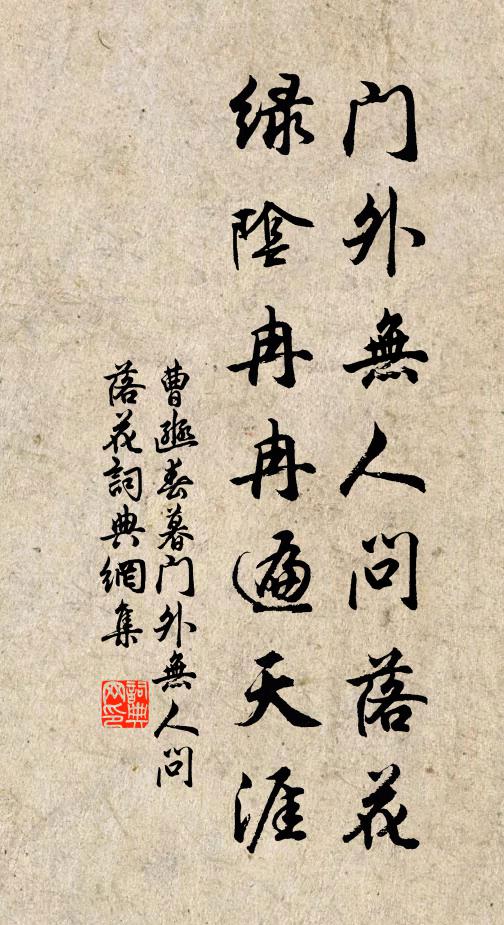 门外無人问落花
绿陰冉冉遍天涯
曹豳春暮门外無人问
落花詞典網集
詞典网印